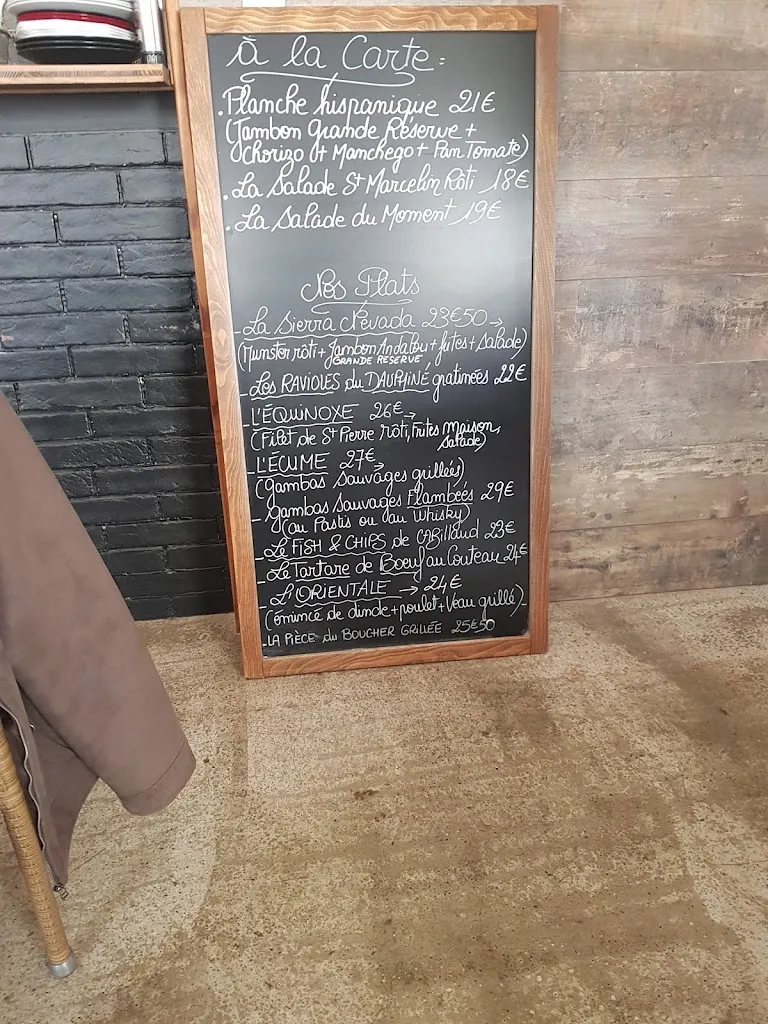 à la Carte :
. Planche hispanique 21€
(Jambon Grande Réserve +
Chorizo et Manchego + Pan Tomate)
. La Salade St Marcelin Rôti 18€
. La Salade du Moment 19€
Nos Plats
- La Sierra Nevada 23€50 →
(Munster rôti + Jambon Andalou + frites + Salade)
GRANDE RÉSERVE
- Les RAVIOLES du DAUPHINÉ gratinées 22€
- L'ÉQUINOXE 26€ →
(Filet de St Pierre rôti, Frites maison,
Salade)
- L'ÉCUME 27€ →
(gambas Sauvages grillées)
- gambas Sauvages Flambées 29€
(au Pastis ou au Whisky)
- Le FISH & CHIPS de CABillaud 23€
- Le Tartare de Boeuf au Couteau 24€
- L'ORIENTALE → 24€
(émincé de dinde + poulet + Veau grillé)
- LA PIÈCE du BOUCHER GRILLÉE 25€50